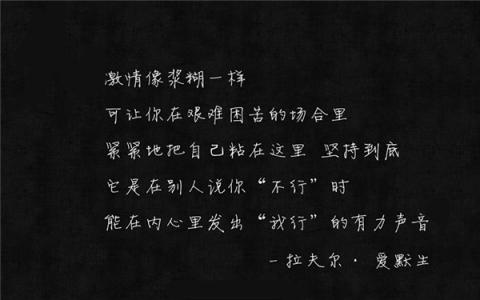 激情像浆糊一样
可让你在艰难困苦的场合里
紧紧地把自己粘在这里 坚持到底
它是在别人说你“不行”时
能在内心里发出“我行”的有力声音
-拉夫尔· 爱默生